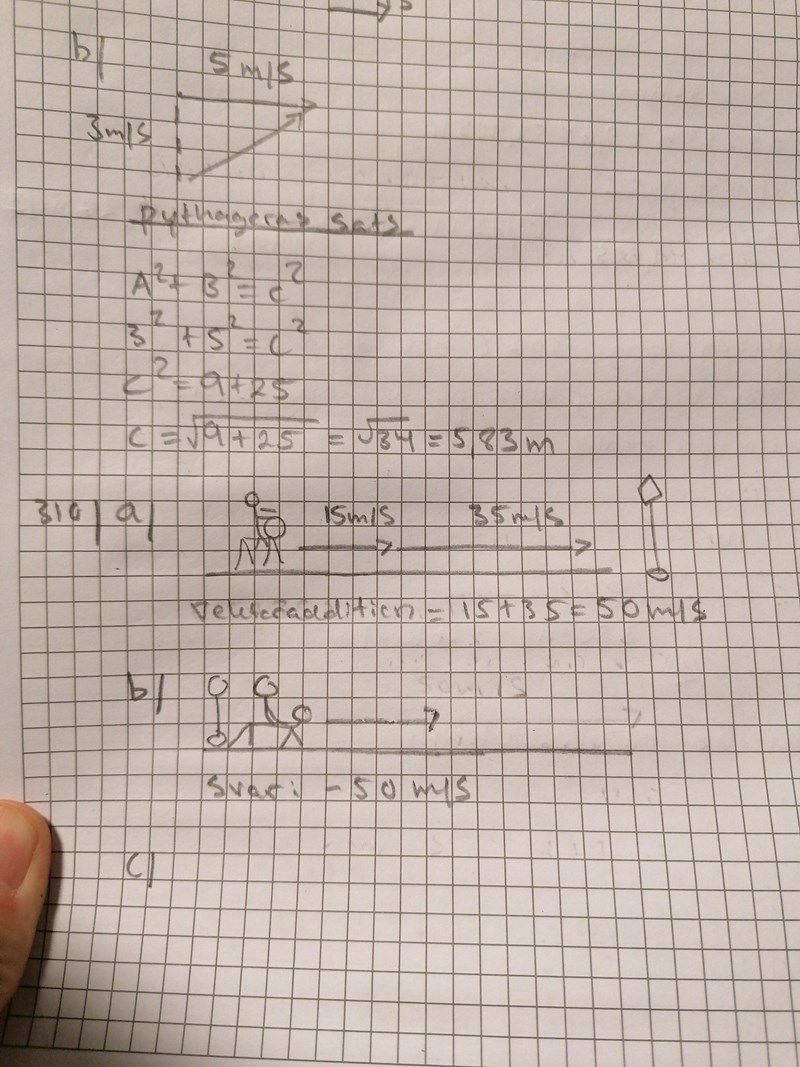 b)
5 m/s
3m/s
Pythagoras sats
A² + B² = c²
3² + 5² = c²
c² = 9+25
c = √9+25 = √34 = 5,83 m
310) a)
15m/s 35m/s
= 15+35 = 50 m/s
b)
Svar: - 50 m/s
c)